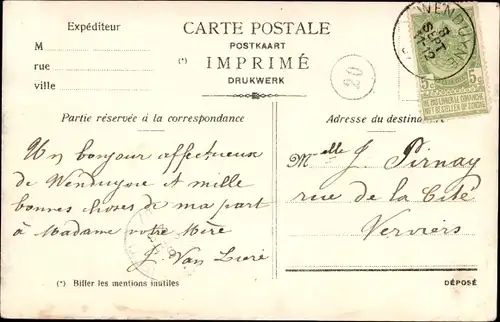 Expéditeur
M
rue
ville
CARTE POSTALE
POSTKAART
(*) IMPRIMÉ
DRUKWERK
20
WENDUYNE
8
SEPT
11-12
5c 5c
NE PAS LIVRER LE DIMANCHE
NIET BESTELLEN OP ZONDAG
Partie réservée à la correspondance
Un bonjour affectueux
de Wenduyne et mille
bonnes choses de ma part
à Madame votre Mère
J. Van Lieré
Adresse du destinat
Melle J Pirnay
rue de la Cité
Verviers
(*) Biffer les mentions inutiles
DÉPOSÉ